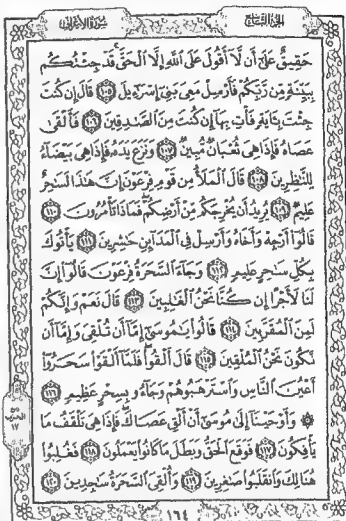 الجزء التاسع
سورة الأعراف
حَقِيقٌ عَلَىٰ أَن لَّا أَقُولَ عَلَى اللَّهِ إِلَّا الْحَقَّ قَدْ جِئْتُكُم
بِبَيِّنَةٍ مِّن رَّبِّكُمْ فَأَرْسِلْ مَعِيَ بَنِي إِسْرَائِيلَ ١٠٥ قَالَ إِن كُنتَ
جِئْتَ بِآيَةٍ فَأْتِ بِهَا إِن كُنتَ مِنَ الصَّادِقِينَ ١٠٦ فَأَلْقَىٰ
عَصَاهُ فَإِذَا هِيَ ثُعْبَانٌ مُّبِينٌ ١٠٧ وَنَزَعَ يَدَهُ فَإِذَا هِيَ بَيْضَاءُ
لِلنَّاظِرِينَ ١٠٨ قَالَ الْمَلَأُ مِن قَوْمِ فِرْعَوْنَ إِنَّ هَٰذَا لَسَاحِرٌ
عَلِيمٌ ١٠٩ يُرِيدُ أَن يُخْرِجَكُم مِّنْ أَرْضِكُمْ فَمَاذَا تَأْمُرُونَ ١١٠
قَالُوا أَرْجِهْ وَأَخَاهُ وَأَرْسِلْ فِي الْمَدَائِنِ حَاشِرِينَ ١١١ يَأْتُوكَ
بِكُلِّ سَاحِرٍ عَلِيمٍ ١١٢ وَجَاءَ السَّحَرَةُ فِرْعَوْنَ قَالُوا إِنَّ
لَنَا لَأَجْرًا إِن كُنَّا نَحْنُ الْغَالِبِينَ ١١٣ قَالَ نَعَمْ وَإِنَّكُمْ
لَمِنَ الْمُقَرَّبِينَ ١١٤ قَالُوا يَا مُوسَىٰ إِمَّا أَن تُلْقِيَ وَإِمَّا أَن
نَّكُونَ نَحْنُ الْمُلْقِينَ ١١٥ قَالَ أَلْقُوا فَلَمَّا أَلْقَوْا سَحَرُوا
أَعْيُنَ النَّاسِ وَاسْتَرْهَبُوهُمْ وَجَاءُو بِسِحْرٍ عَظِيمٍ ١١٦
۞ وَأَوْحَيْنَا إِلَىٰ مُوسَىٰ أَنْ أَلْقِ عَصَاكَ فَإِذَا هِيَ تَلْقَفُ مَا
يَأْفِكُونَ ١١٧ فَوَقَعَ الْحَقُّ وَبَطَلَ مَا كَانُوا يَعْمَلُونَ ١١٨ فَغُلِبُوا
هُنَالِكَ وَانقَلَبُوا صَاغِرِينَ ١١٩ وَأُلْقِيَ السَّحَرَةُ سَاجِدِينَ ١٢٠
الحزب
١٧
١٦٤